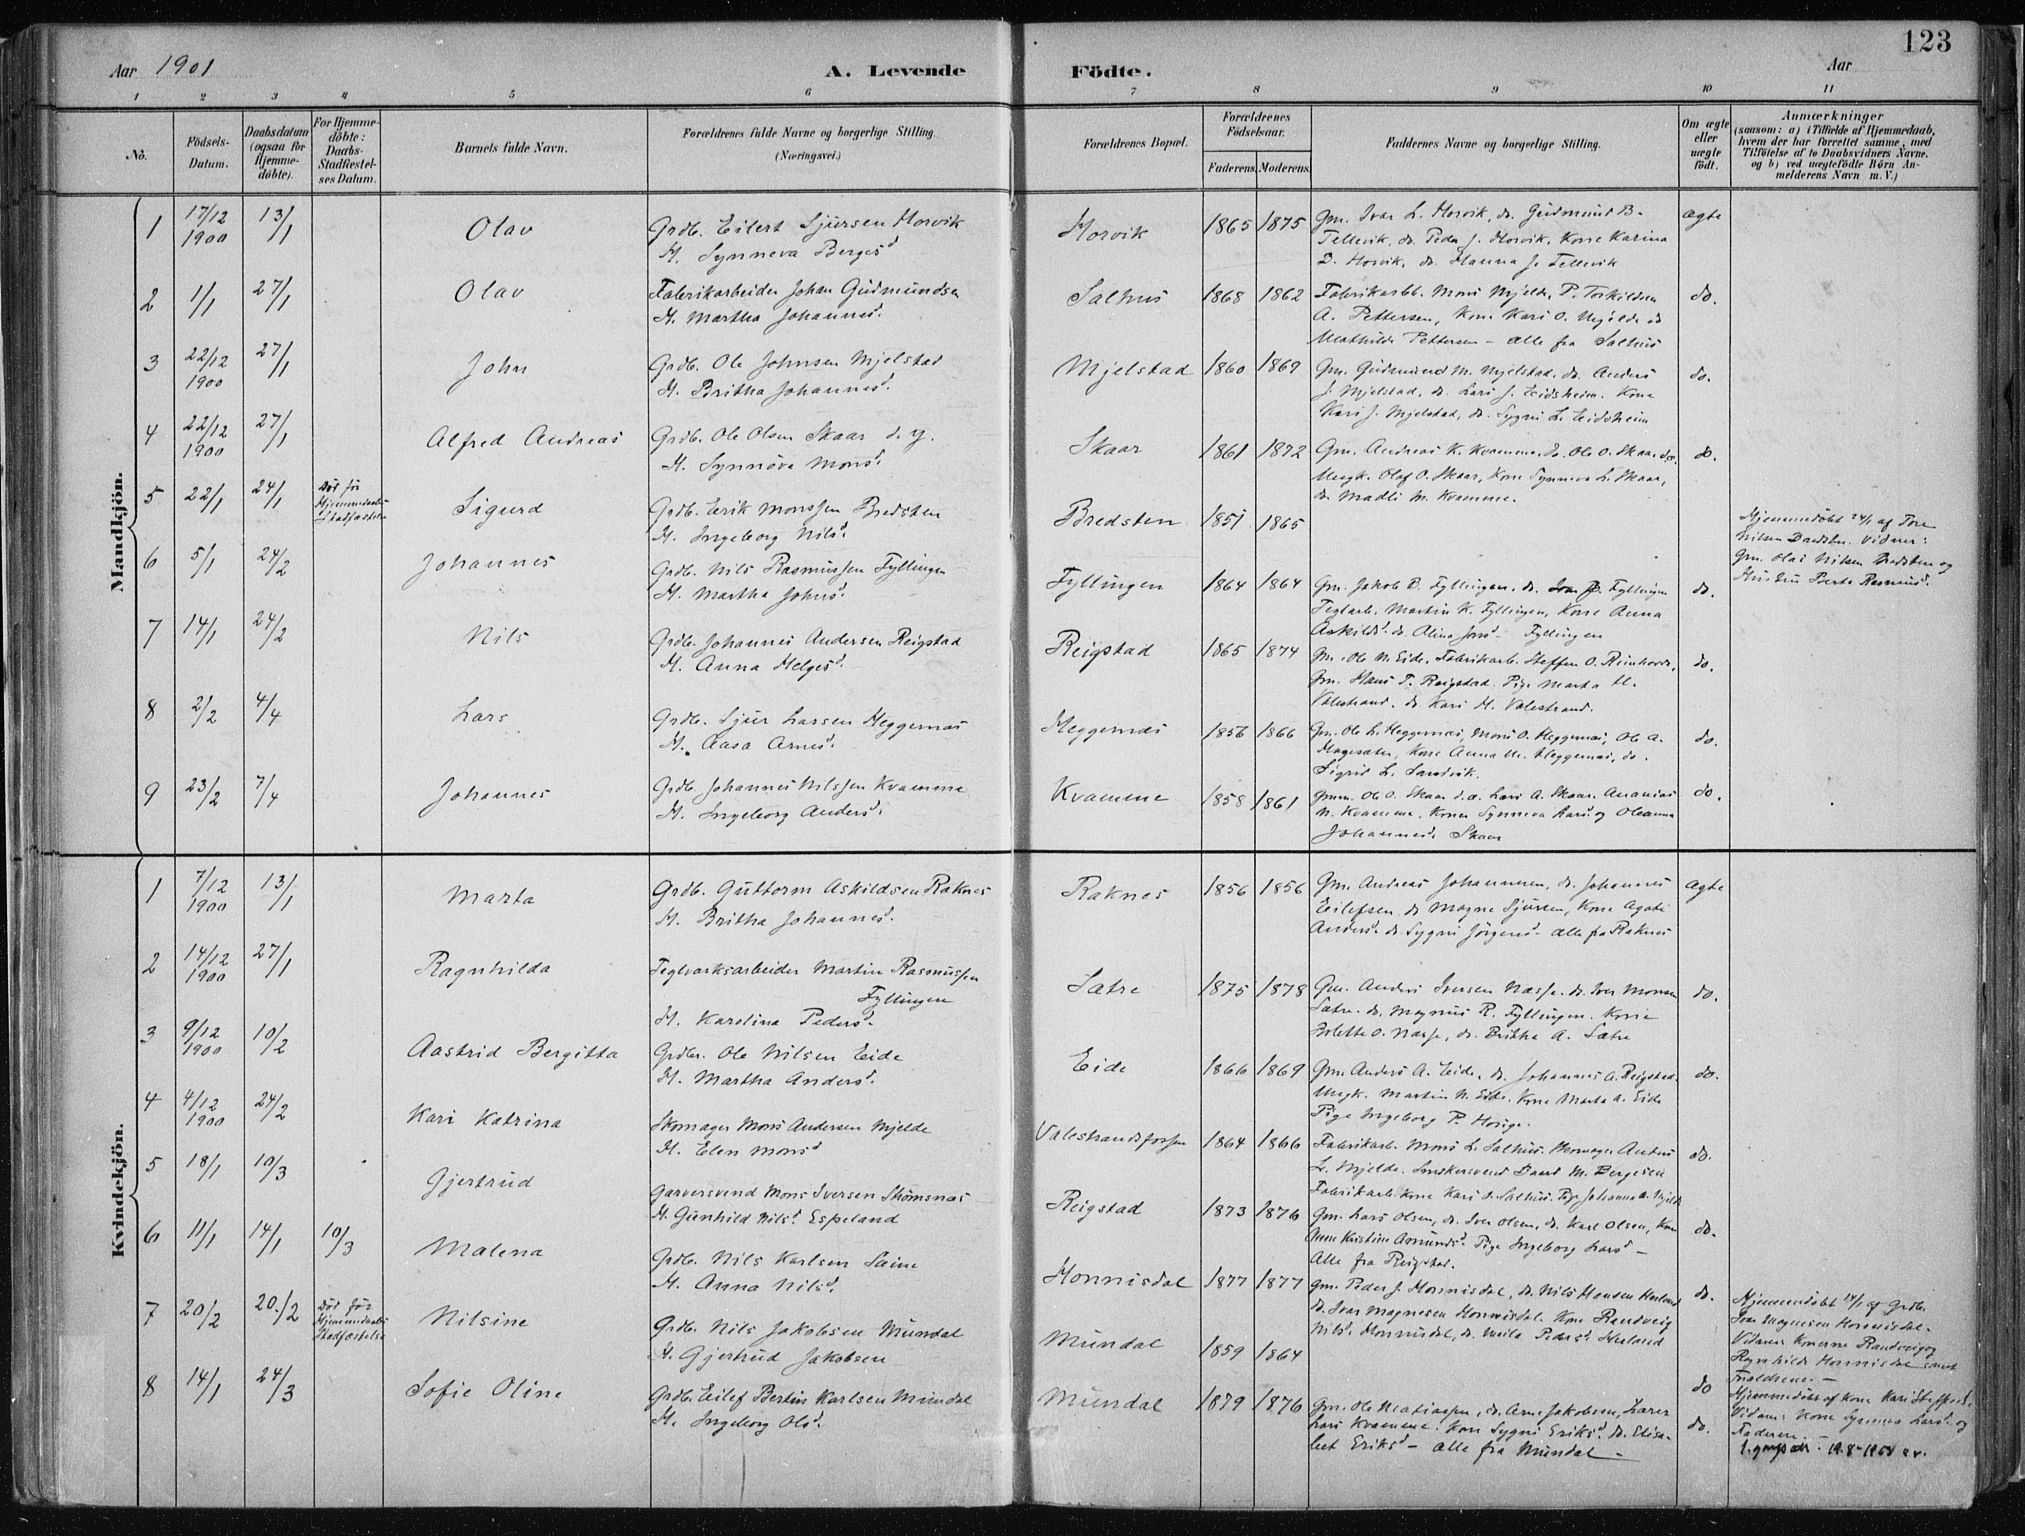 123
Aar 1901
A. Levende Födte.
Aar
1 2 3 4 5 6 7 8 9 10 11
No.
Födsels-Datum.
Daabsdatum (ogsaa for Hjemmedöbte).
For Hjemmedöbte: Daabs-Stadfæstelses Datum.
Barnets fulde Navn.
Forældrenes fulde Navne og borgerlige Stilling. (Næringsvei.)
Forældrenes Bopæl.
Forældrenes Födselsaar.
Faderens. Moderens.
Faddernes Navne og borgerlige Stilling.
Om ægte eller uægte födt.
Anmærkninger
(saasom: a) i Tilfælde af Hjemmedaab, hvem der har forrettet samme, med Tilföielse af to Daabsvidners Navne. og b) ved uægtefödte Börn Anmelderens Navn m. V.)
Mandkjön.
1 17/12 1900 13/1 Olav
Grdb. Eilert Sjursen Horvik
H. Synneva Bergesd
Horvik 1865 1875
Gm. Ivar L. Horvik, do. Gudmund B.
Tellevik, do. Peder J. Horvik, Kone Karina
D. Horvik, do. Hanna J. Tellevik
ægte
2 1/1 27/1 Olav
Fabrikarbeider Johan Gudmundsen
H. Martha Johannesd.
Salhus 1868 1862
Fabrikarbb. Mons Mjelde, P. Torkildsen
A. Pettersen, Kone Kari O. Mjelde do
Mathilde Pettersen - alle fra Salhus
do.
3 22/12 1900 27/1 John
Grdb. Ole Johnsen Mjelstad
H. Britha Johannesd.
Mjelstad 1860 1869
Gm. Gudmund M. Mjelstad, do. Anders
J. Mjelstad, do. Lars J. Eidsheim. Kone
Kari J. Mjelstad, do. Sygni L. Eidsheim
do.
4 22/12 1900 27/1 Alfred Andreas
Grdb. Ole Olsen Skaar d. y.
H. Synnöva Monsd.
Skaar 1861 1872
Gm. Andreas K. Kvamme, do. Ole O. Skaar d.æ.
Ungk. Olaf O. Skaar, Kone Synneva L. Skaar,
do. Madli M. Kvamme.
do.
5 22/1 24/1 Död før Hjemmedaabs Stadfæstelse Sigurd
Grdb. Erik Monssen Bredsten
H. Ingeborg Nilsd.
Bredsten 1851 1865
Hjemmedöbt 24/1 af Tore
Nilsen Bredsten. Vidner:
Gm. Olai Nilsen Bredsten og
Hustru Berte Rasmusd.
6 5/1 24/2 Johannes
Grdb. Nils Rasmussen Fyllingen
H. Martha Johnsd.
Fyllingen 1864 1864
Gm. Jakob R. Fyllingen, do. Fyllingen
Teglarb. Martin K. Fyllingen, Kone Anna
Askildsd. do. Alina Jonsd - Fyllingen
do.
7 14/1 24/2 Nils
Grdb. Johannes Andersen Reigstad
H. Anna Helgesd.
Reigstad 1865 1874
Gm. Ole N. Eide, Fabrikarb. Steffen O.
Gm. Hans P. Reigstad. Pige Marta H.
Valestrand. do Kari H. Valestrand.
do.
8 2/2 4/4 Lars
Grdb. Sjur Larssen Heggernæs
H. Aasa Arnesd.
Heggernæs 1856 1866
Gm. Ole L. Heggernæs, Mons O. Heggernæs, Ole A.
Hagesæter, Kone Anna M. Heggernæs, do.
Sigrid L. Sandvik.
do.
9 23/2 7/4 Johannes
Grdb. Johannes Nilssen Kvamme
H. Ingeborg Andersd.
Kvamme 1858 1861
Gmm. Ole O. Skaar d.æ. Lars A. Skaar. Ananias
N. Kvamme, Koner Synneva Larsd. og Oleanna
Johannesd. Skaar
do.
Kvindekjön.
1 7/12 1900 13/1 Marta
Grdb. Guttorm Askildsen Raknes
H. Britha Johannesd.
Raknes 1856 1856
Gm. Andreas Johannesen, do. Johannes
Eilefsen do Magne Sjursen, Kone Agate
Andersd. do Sygni Jörgensd - alle fra Raknes
ægte
2 14/12 1900 27/1 Ragnhilda
Teglværksarbeider Martin Rasmussen
Fyllingen
H. Karolina Pedersd.
Sætre 1875 1878
Gm. Anders Iversen Nasse, do. Iver Monsen
Sætre, do. Magnus R. Fyllingen. Kone
Bolette O. Nasse, do. Britha A. Sætre
do.
3 9/12 1900 10/2 Aastrid Bergitta
Grdbr. Ole Nilsen Eide
H. Martha Andersd.
Eide 1866 1869
Gm Anders A. Eide, do. Johannes A. Reigstad.
Ungk. Martin N. Eide. Kone Marta A. Eide
Pige Ingeborg P.
do.
4 4/12 1900 24/2 Kari Katrina
Skomager Mons Andersen Mjelde
H. Elen Monsd
Valestrandsfossen 1864 1866
Fabrikarb. Mons L. Salhus. Skomager Anders
L. Mjelde. Daard M.
Fabrikarb. Kone Kari Salhus. Pige Johanna A. Mjelde
do.
5 18/1 10/3 Gjertrud
Garversvend Mons Iversen Strömsnæs
H. Gunhild Nilsd. Espeland
Reigstad 1873 1876
Gm. Lars Olsen, do. Iver Olsen, do. Karl Olsen, Kone
Anne Kristine Amundsd. Pige Ingeborg Larsd -
Alle fra Reigstad.
do.
6 11/1 14/1 10/3 Malena
Grdb. Nils Karlsen
H. Anna Nilsd.
Honnisdal 1877 1877
Gm. Peder J. Honnisdal, do. Nils Hansen Herland
do. Ivar Magnesen Honnisdal. Kone Randveig
Nilsd. Honnisdal, do. Pedersd. Herland
do.
Hjemmedöbt 14/1 af Grdb.
Ivar Magnesen Honnisdal.
Vidner Konerne Randveig og
Ragnhilde Honnisdal samt
Forældrene. -
7 20/2 20./2 Död før Hjemmedaabs Stadfæstelse Nilsine
Grdb. Nils Jakobsen Mundal
H. Gjertrud Jakobsen
Mundal 1859 1864
do
8 14/1 24/3 Sofie Oline
Grdb. Eilef Bertin Karlsen Mundal
H. Ingeborg Olsd.
Mundal 1879 1876
Gm. Ole Mathiassen, do. Arne Jakobsen, Lærer
Lars Kvamme. Kone Sygni Eriksd. do. Elisa-
bet Eriksd - alle fra Mundal -
do.
Hjemmedöbt af Kone Kari Steffensd.
Vidner: Kone Synneva Larsd. og
Faderen. -
19.8-1958